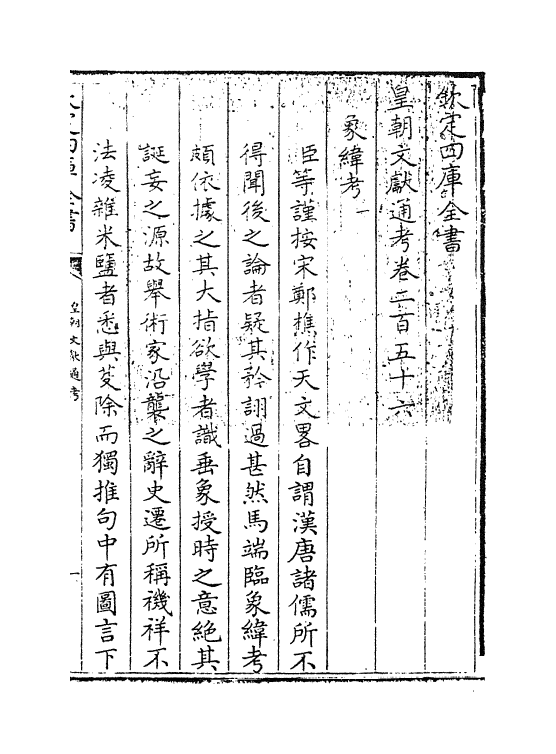 欽定四庫全書
皇朝文獻通考卷二百五十六
象緯考一
臣等謹按宋鄭樵作天文畧自謂漢唐諸儒所不
得聞後之論者疑其矜詡過甚然馬端臨象緯考
頗依據之其大指欲學者識垂象授時之意絶其
誕妄之源故舉術家沿襲之辭史遷所稱禨祥不
法凌雜米鹽者悉與芟除而獨推句中有圖言下
欽定四庫全書
皇朝文獻通考
一